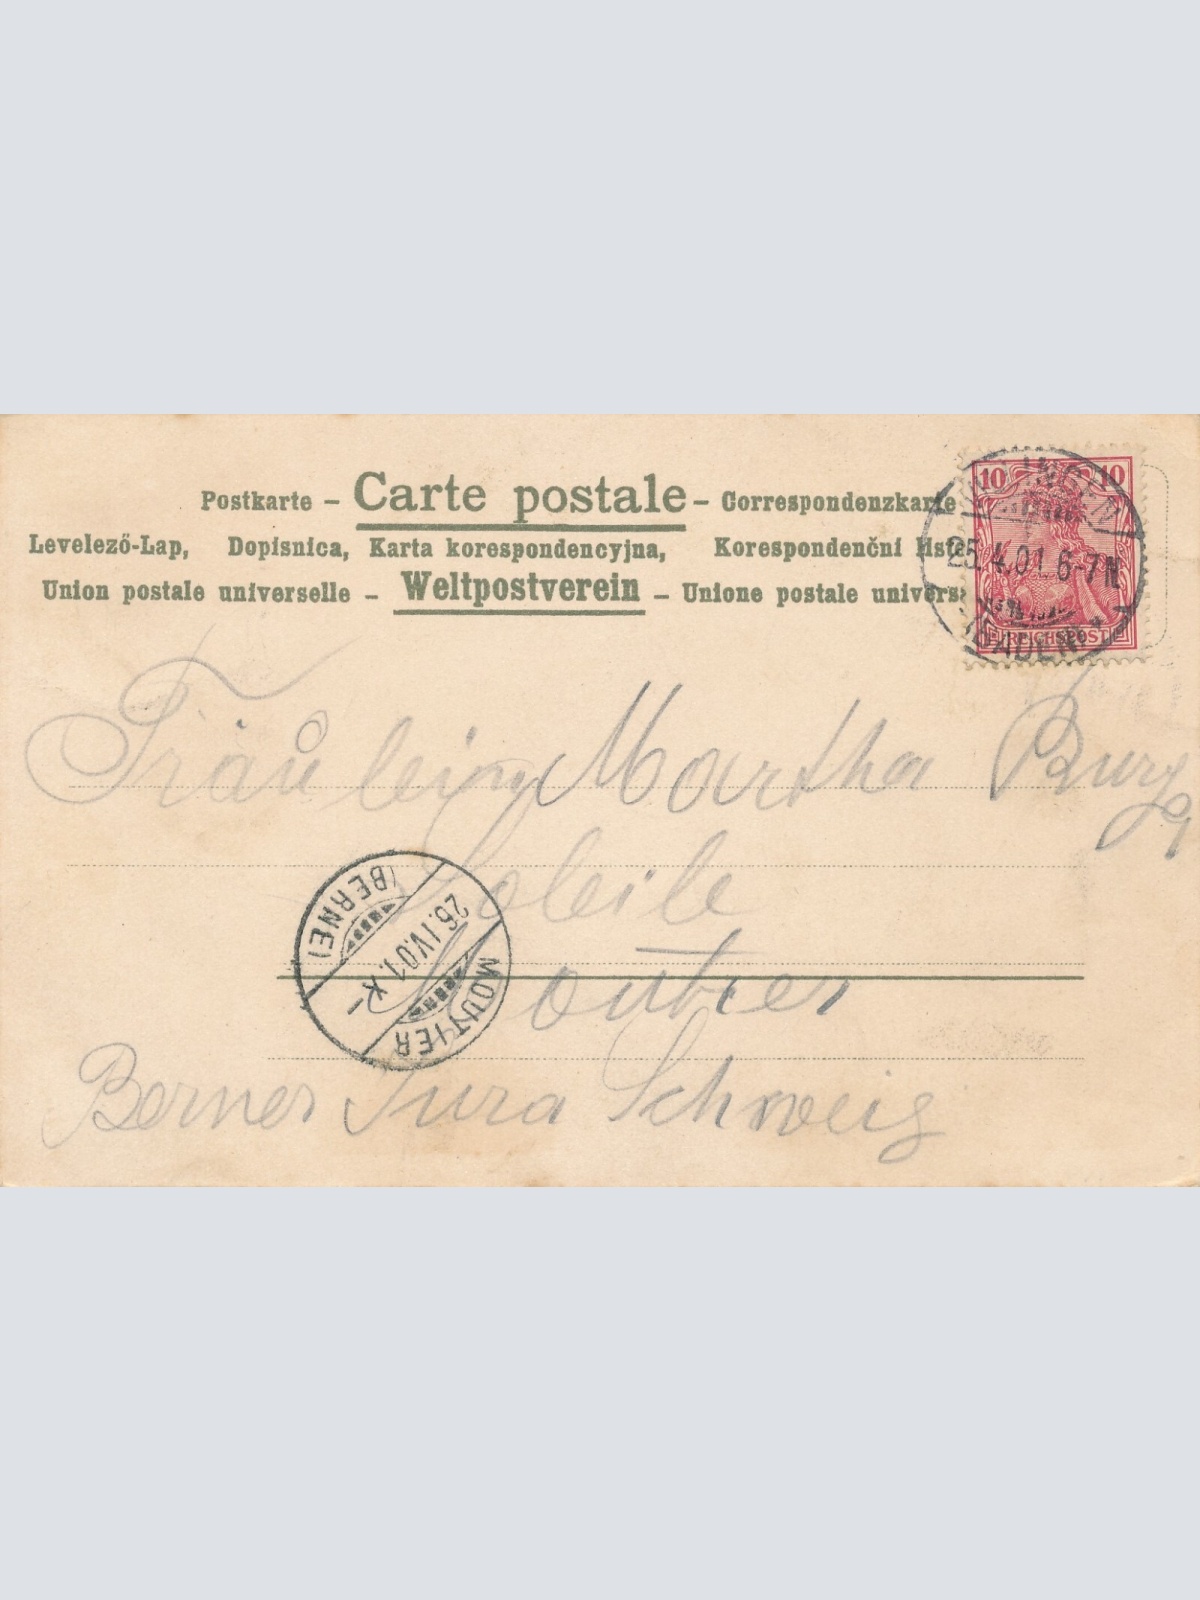 Postkarte – Carte postale – Correspondenzkarte
Levelező-Lap, Dopisnica, Karta korespondencyjna, Korespondenční liste
Union postale universelle – Weltpostverein – Unione postale univers
10 10
25.4.01 6-7N
(BADEN)
REICHSPOST
Fräulein Martha Burgy
Moutier
Berner Jura Schweiz
(BERNE)
26.IV.01.
MOUTIER